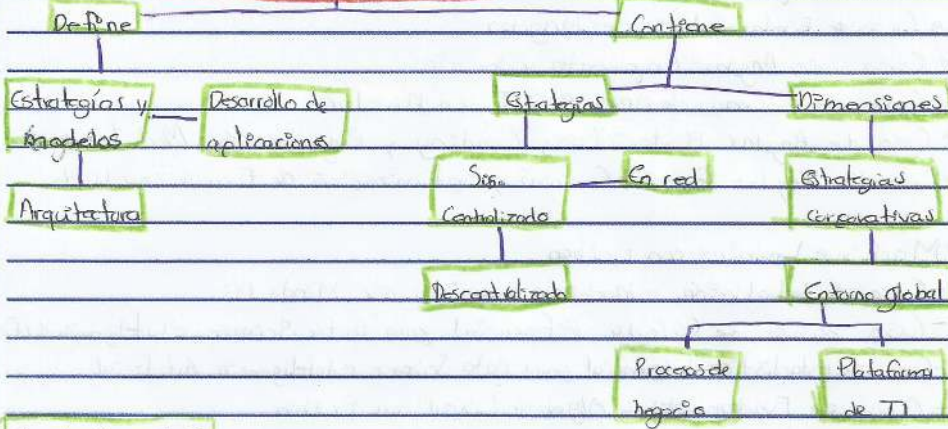 Define
Contiene
Estrategías y
modelos
Desarrollo de
aplicaciones
Estategias
Dimensiones
Arquitectura
Sis.
Centralizado
En red
Estrategias
corporativas
Descentralizado
Entorno global
Procesos de
negocio
Plataforma
de TI